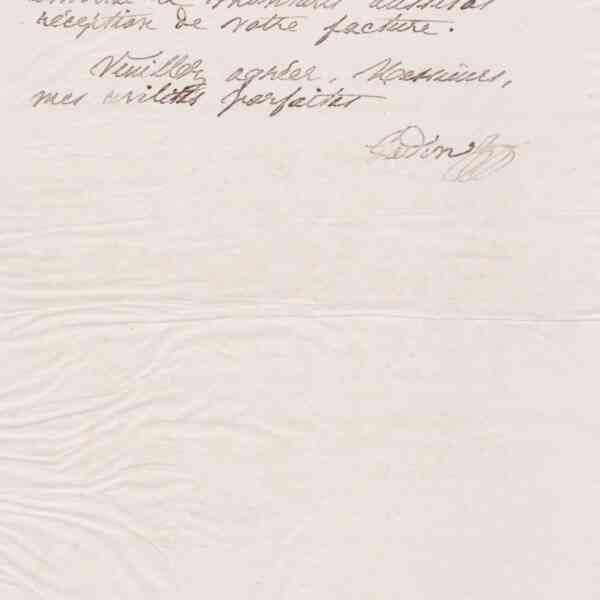 aussitôt
réception de votre facture.
Veuillez agréer, Messieurs,
mes civilités parfaites
Godin